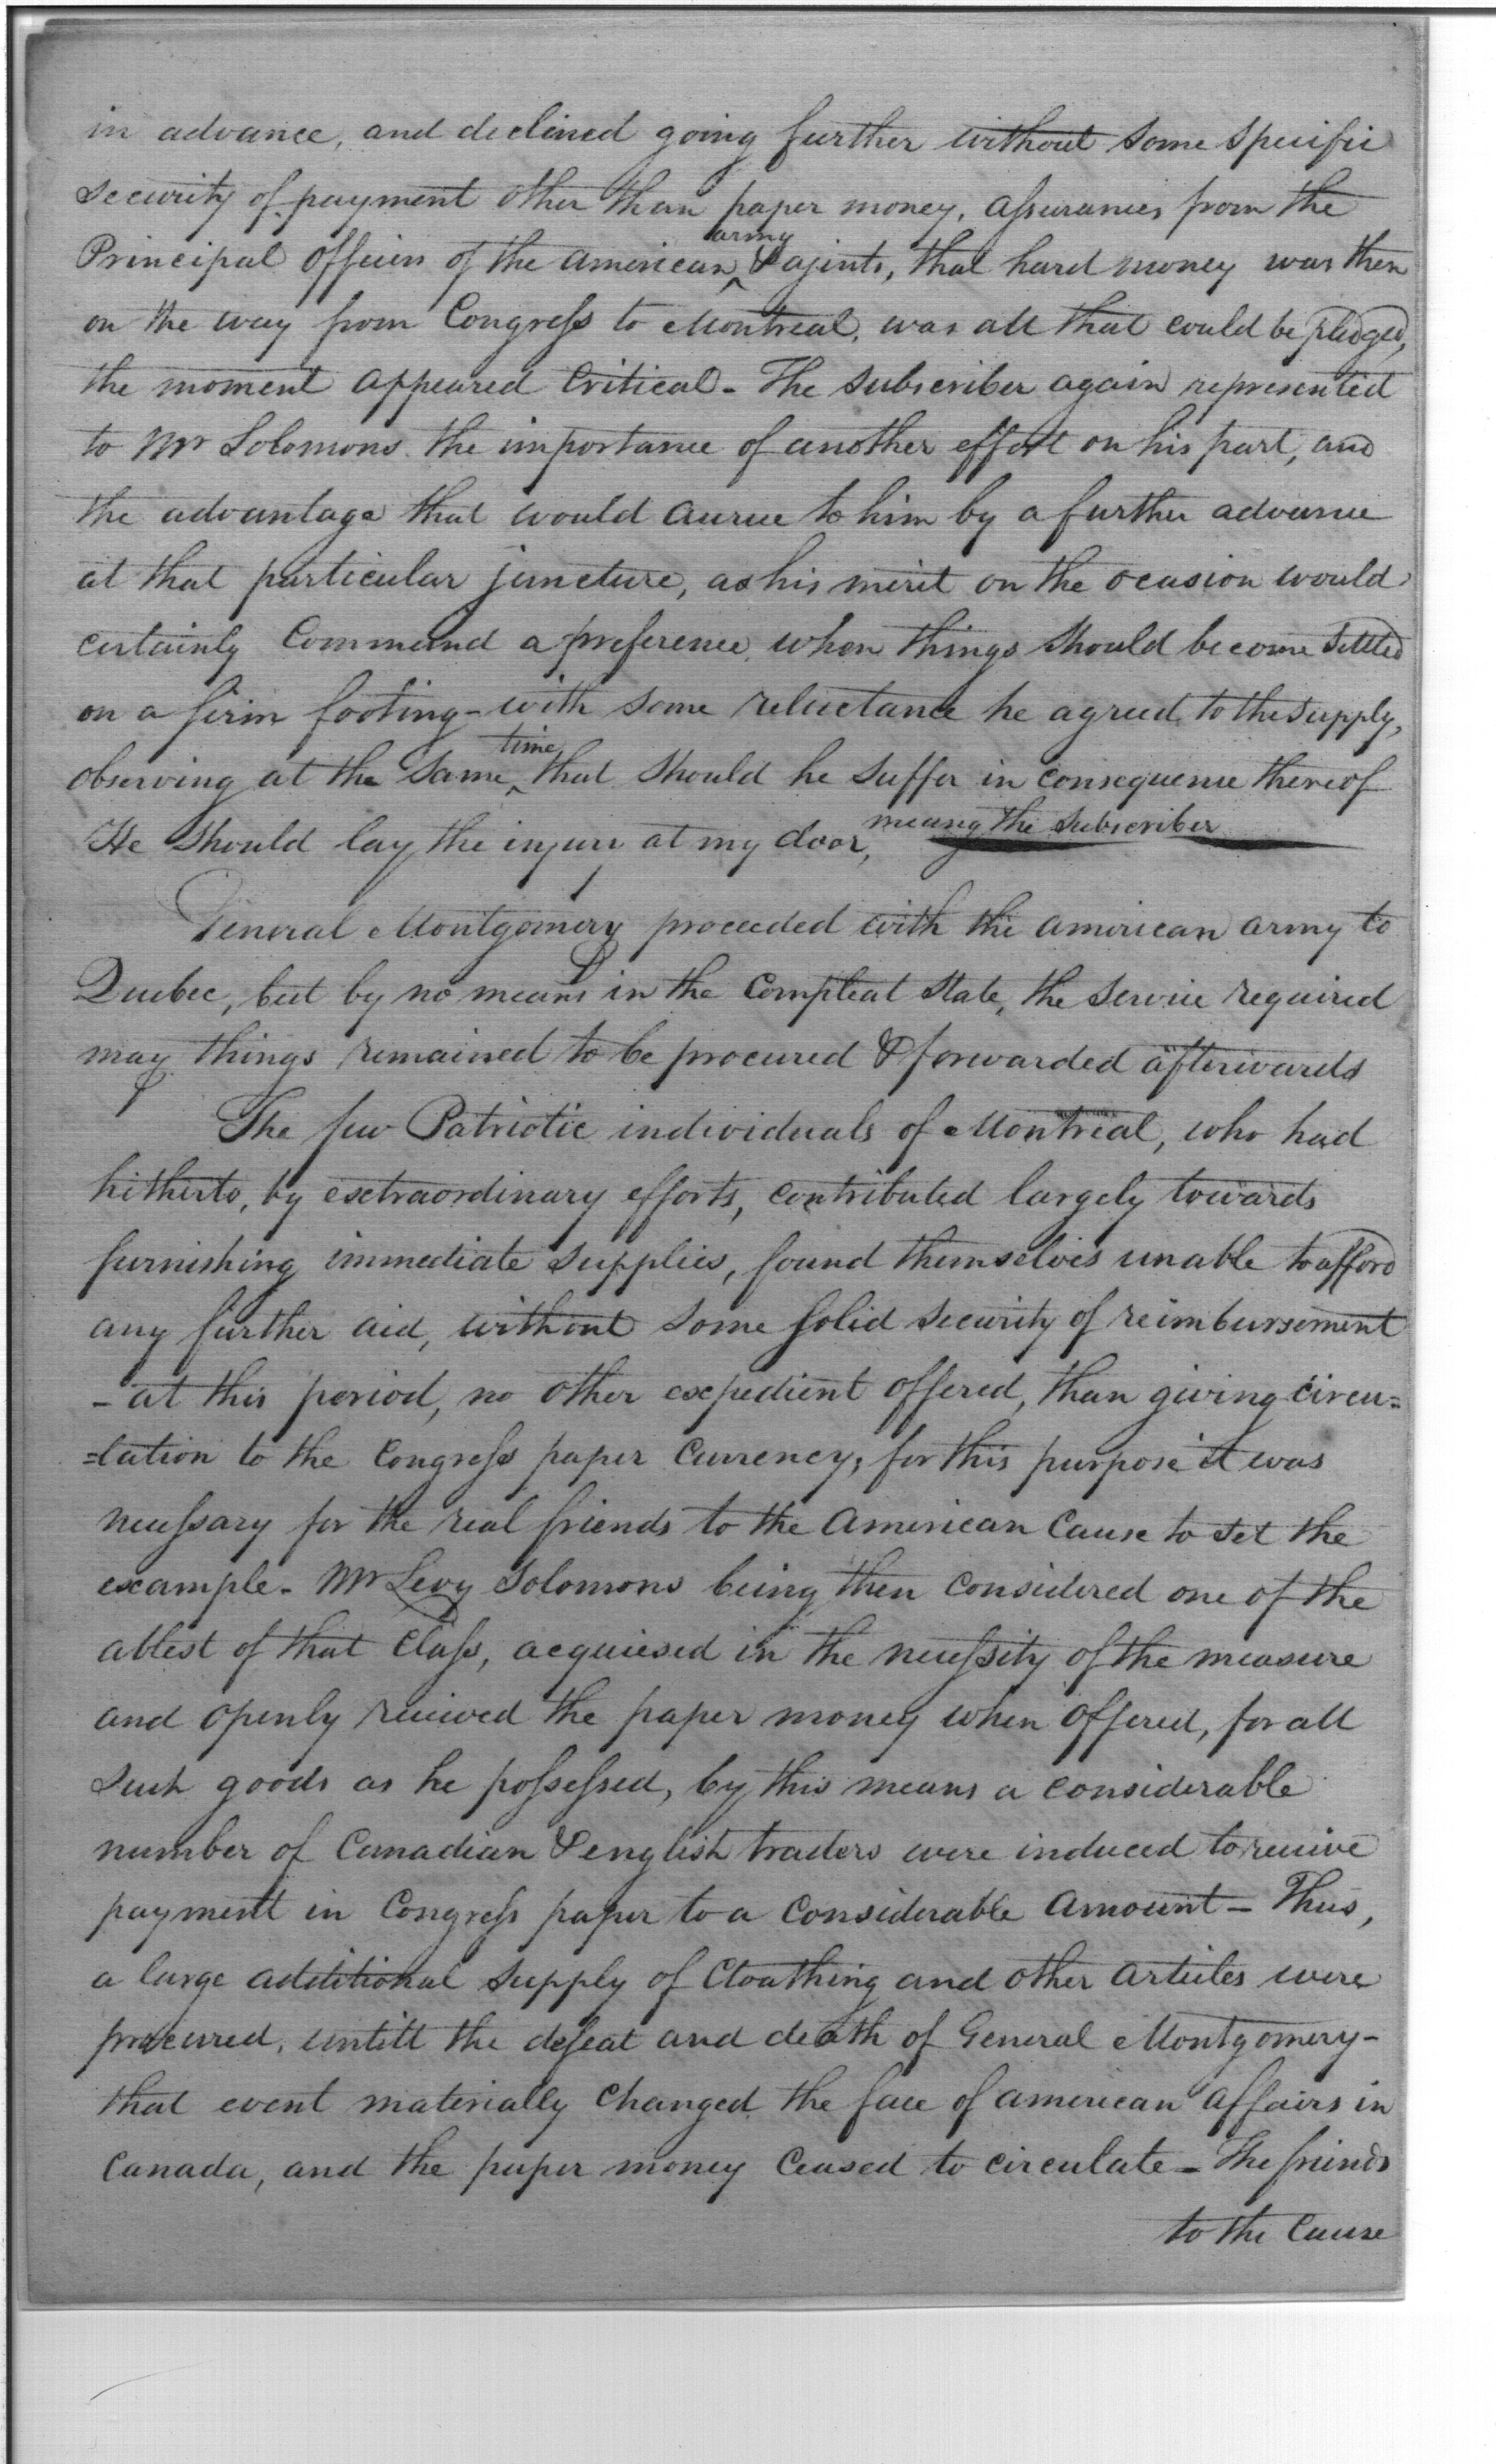 in advance, and declined going further without some specific
security of payment other than paper money, assurances from the
Principal officers of the american army & agents, that hard money was then
on the way from Congress to Montreal, was all that could be pledged,
the moment appeared Critical - The subscriber again represented
to Mr Solomons the importance of another effort on his part, and
the advantage that would accrue to him by a further advance
at that particular juncture, as his merit on the ocasion would
certainly Command a preference when things should become settled
on a firm footing - with some reluctance he agreed to the supply,
observing at the same time that should he suffer in consequence thereof
He should lay the injury at my door, meang the subscriber
General Montgomery proceeded with the american army to
Quebec, but by no means in the Compleat state, the service required
may things remained to be procured & forwarded afterwards
The few Patriotic individuals of Montreal, who had
hitherto, by extraordinary efforts, contributed largely towards
furnishing immediate supplies, found themselves unable to afford
any further aid, without some solid security of reimbursement
- at this period, no other expedient offered, than giving circu=
=lation to the Congress paper Currency, for this purpose it was
necessary for the real friends to the American Cause to set the
example - Mr Levy Solomons being then Considered one of the
ablest of that Class, acquiesed in the necessity of the measure
and openly received the paper money when offered, for all
such goods as he possessed, by this means a considerable
number of Canadian & english traders were induced to receive
payment in Congress paper to a Considerable Amount - Thus,
a large additional supply of Cloathing and other articles were
procured, untill the defeat and death of General Montgomery -
that event materially Changed the face of american affairs in
Canada, and the paper money Ceased to circulate - The friends
to the Cause